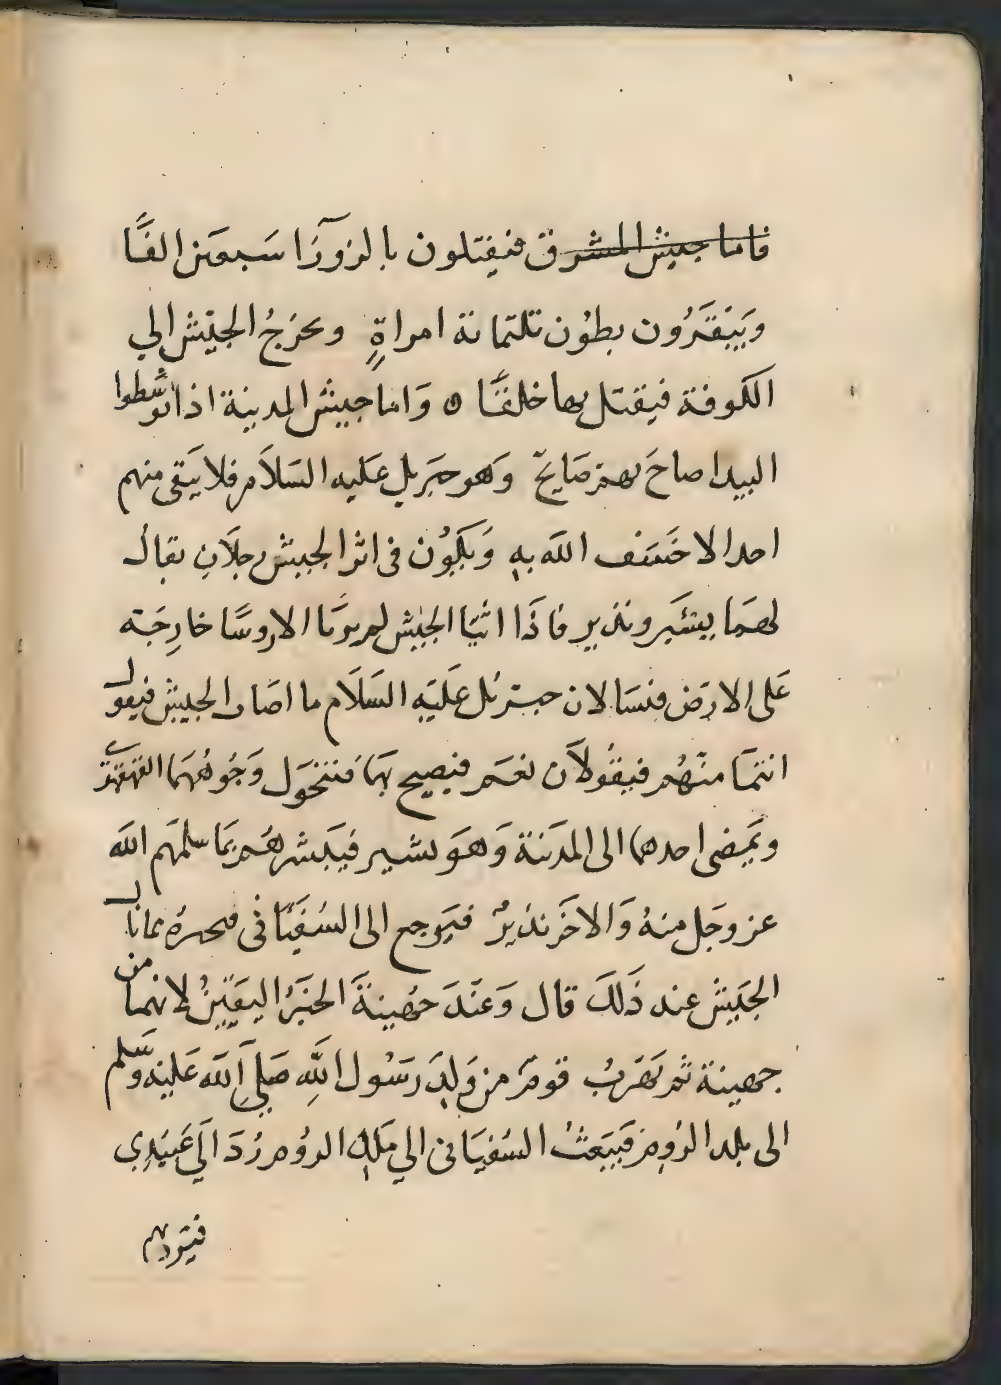 فاما جيش المشرق فيقتلون بالزورآ سبعين الفًا
ويبقرون بطون ثلثمائة امراةٍ ويخرج الجيش الي
الكوفة فيقتل بها خلقًا ٥ واما جيش المدينة اذا توسطوا
البيدا صاح بهم صايح وهو جبريل عليه السلام فلا يبقى منهم
احد الا خسف الله به ويكون في اثر الجيش رجلان يقال
لهما بشير ونذير فاذا اتيا الجيش لم يريا الا روسًا خارجة
على الارض فيسالان جبرئيل عليه السلام ما اصاب الجيش فيقول
انتما منهم فيقولان نعم فيصيح بهما فتتحول وجوههما القهقرى
ويمضى احدهما الى المدينة وهو بشير فيبشرهم بما سلمهم الله
عز وجل منه والاخر نذير فيرجع الى السفيانى فيخبره بما نال
الجيش عند ذلك قال وعند جهينة الخبر اليقين لانهما من
جهينة ثم يهرب قوم من ولد رسول الله صلي الله عليه وسلم
الى بلد الروم فيبعث السفيانى الي ملك الروم رد الي عبيدي
فيردهم